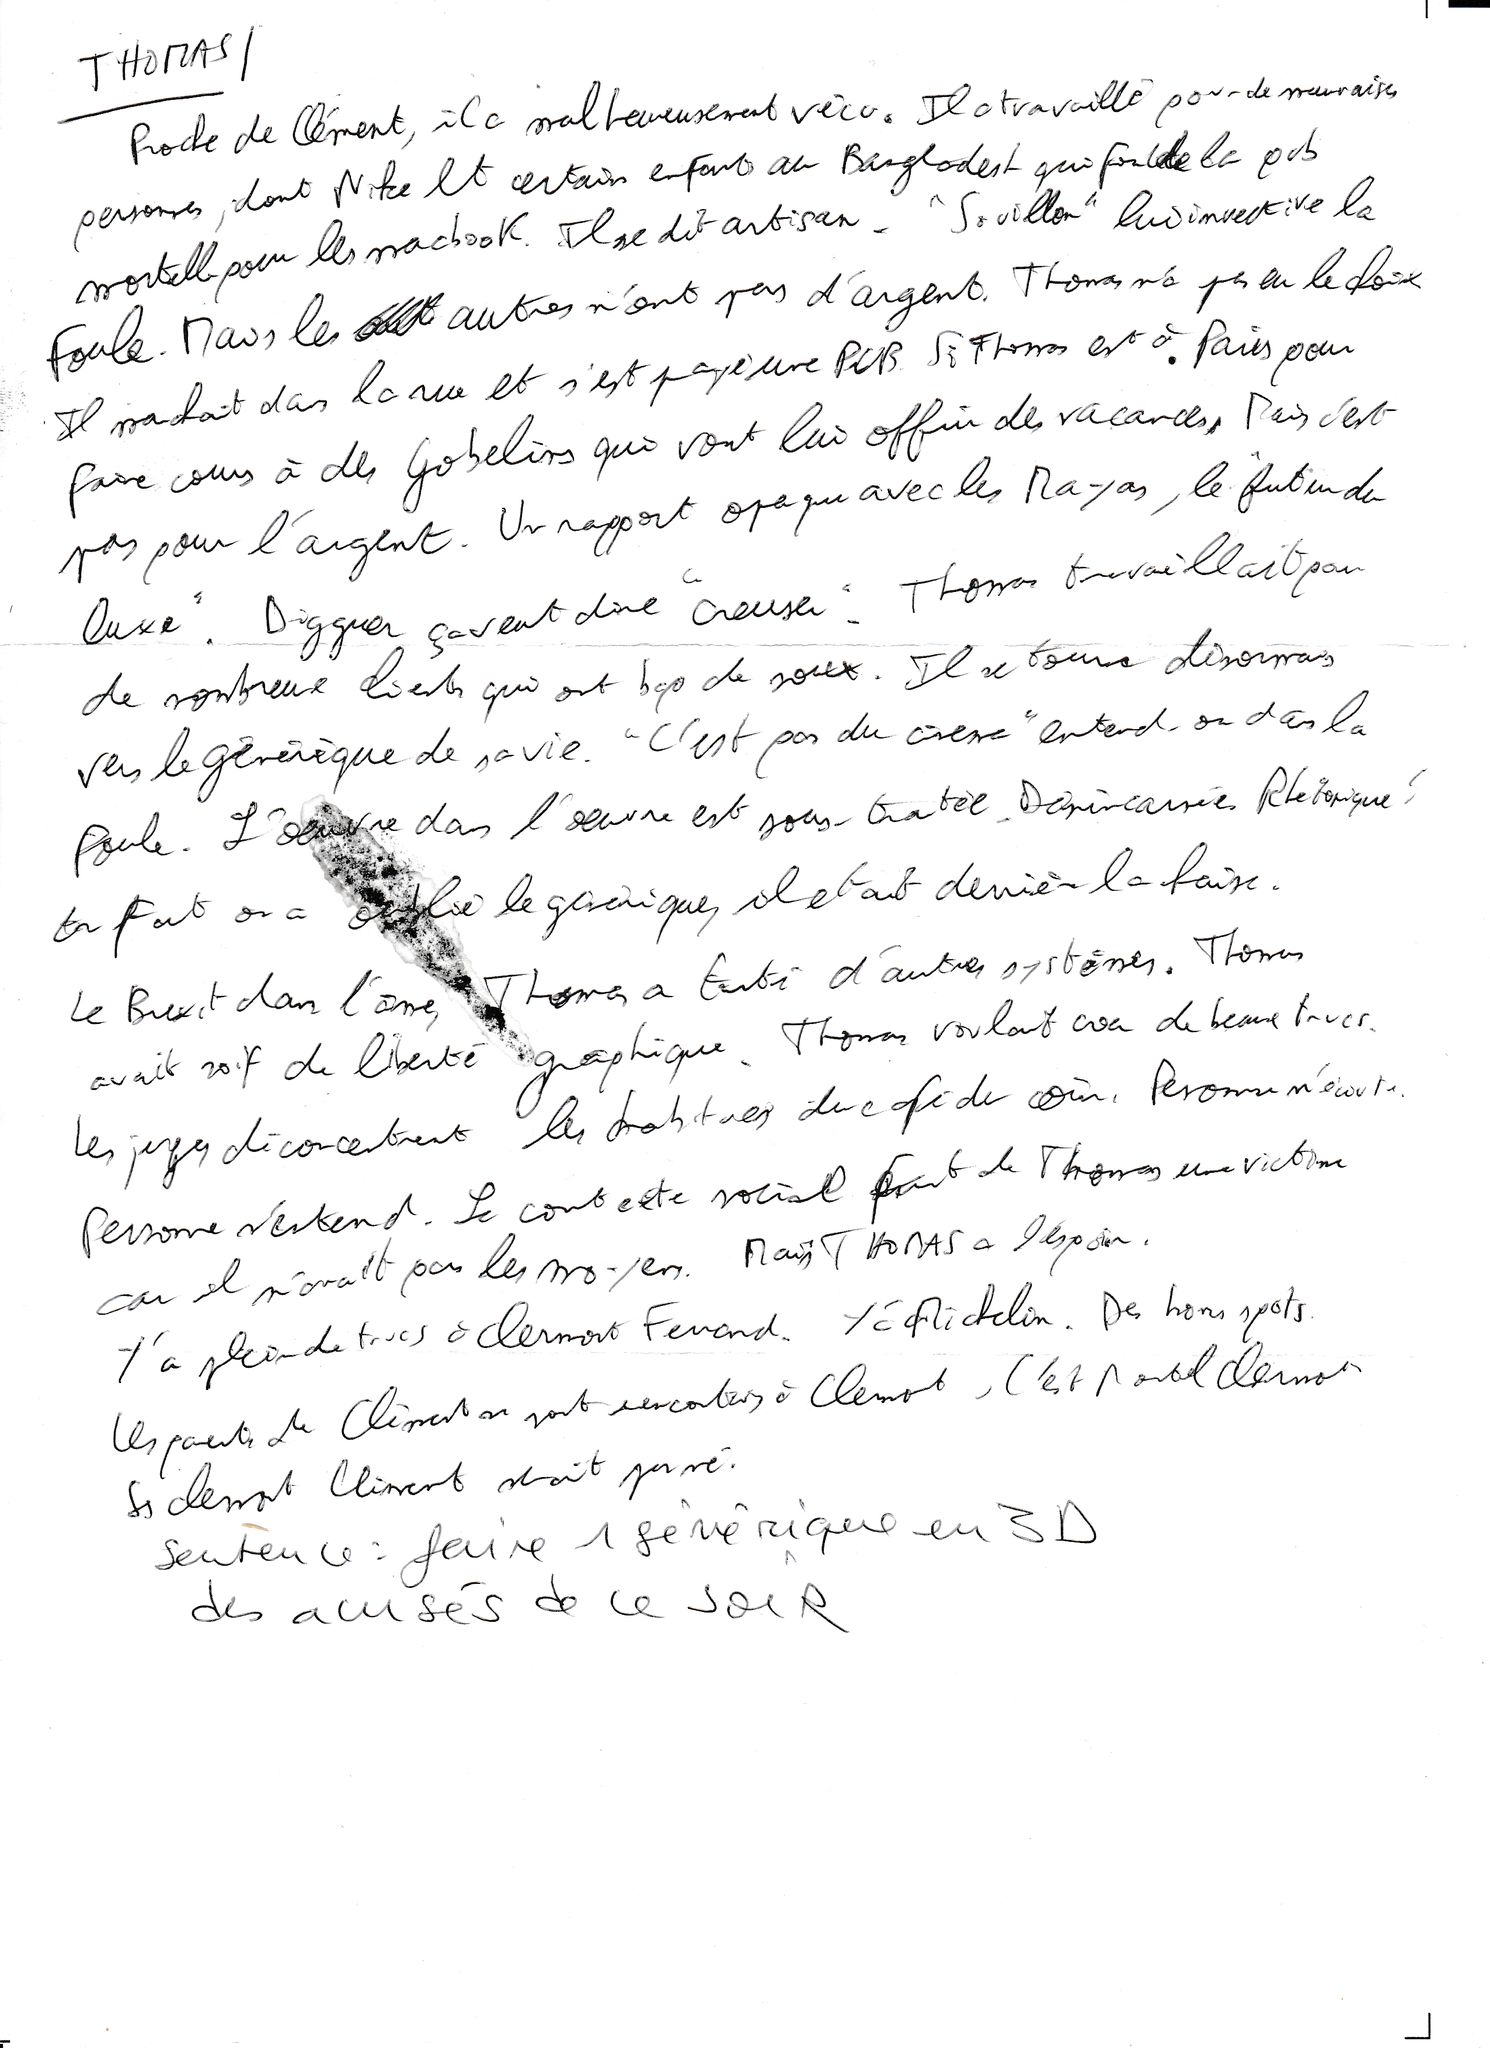 THOMAS /
Proche de Clément, il a malheureusement vécu. Il a travaillé pour de mauvaises
personnes, dont Nike et certains enfants au Bangladesh qui font de la pub
mortelle pour les macbook. Il se dit artisan. "Souillon" lui invective la
foule. Mais les autres n'ont pas d'argent. Thomas n'a pas eu le choix
Il marchait dans la rue et s'est payé une PUB. Si Thomas est à Paris pour
faire cours à des Gobelins qui vont lui offrir des vacances. Mais c'est
pas pour l'argent. Un rapport opaque avec les Mayas, le "futur du
luxe". Digguer ça veut dire "creuser". Thomas travaillait pour
de nombreux clients qui ont bcp de sous. Il se tourne désormais
vers le générique de sa vie. "C'est pas du cinéma" entend-on dans la
foule. L'oeuvre dans l'oeuvre est sous-traitée. Désincarnée. Rhétorique!
En fait on a oublié le générique, il était derrière la chaise.
Le Brexit dans l'âme, Thomas a tenté d'autres systèmes. Thomas
avait soif de liberté graphique. Thomas voulait créer de beaux trucs.
Les juges déconcentrent les habitués du café du coin. Personne n'écoute.
Personne n'entend. Le contexte social fait de Thomas une victime
car il n'avait pas les moyens. Mais THOMAS a l'espoir.
Y'a plein de trucs à Clermont Ferrand. Y'a Michelin. Des bons spots.
Les parents de Clément se sont rencontrés à Clermont, C'est mortel Clermont
Clément serait
sentence : faire 1 générique en 3D
des accusés de ce soiR